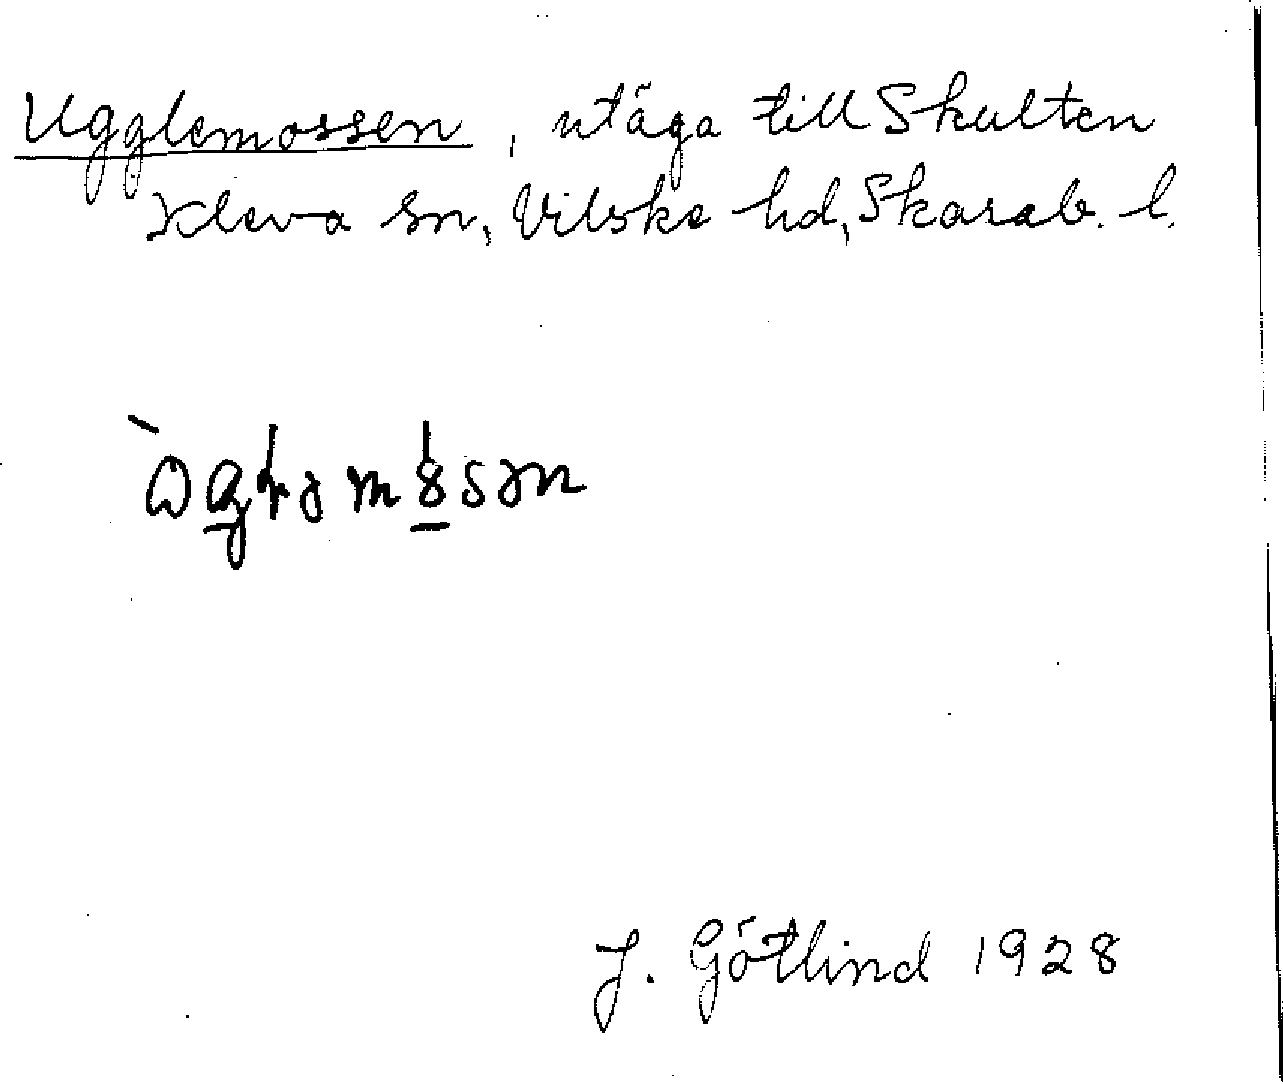 Ugglemossen, utäga till Skulten
Kleva sn, Vilske hd, Skarab. l.
J. Götlind 1928